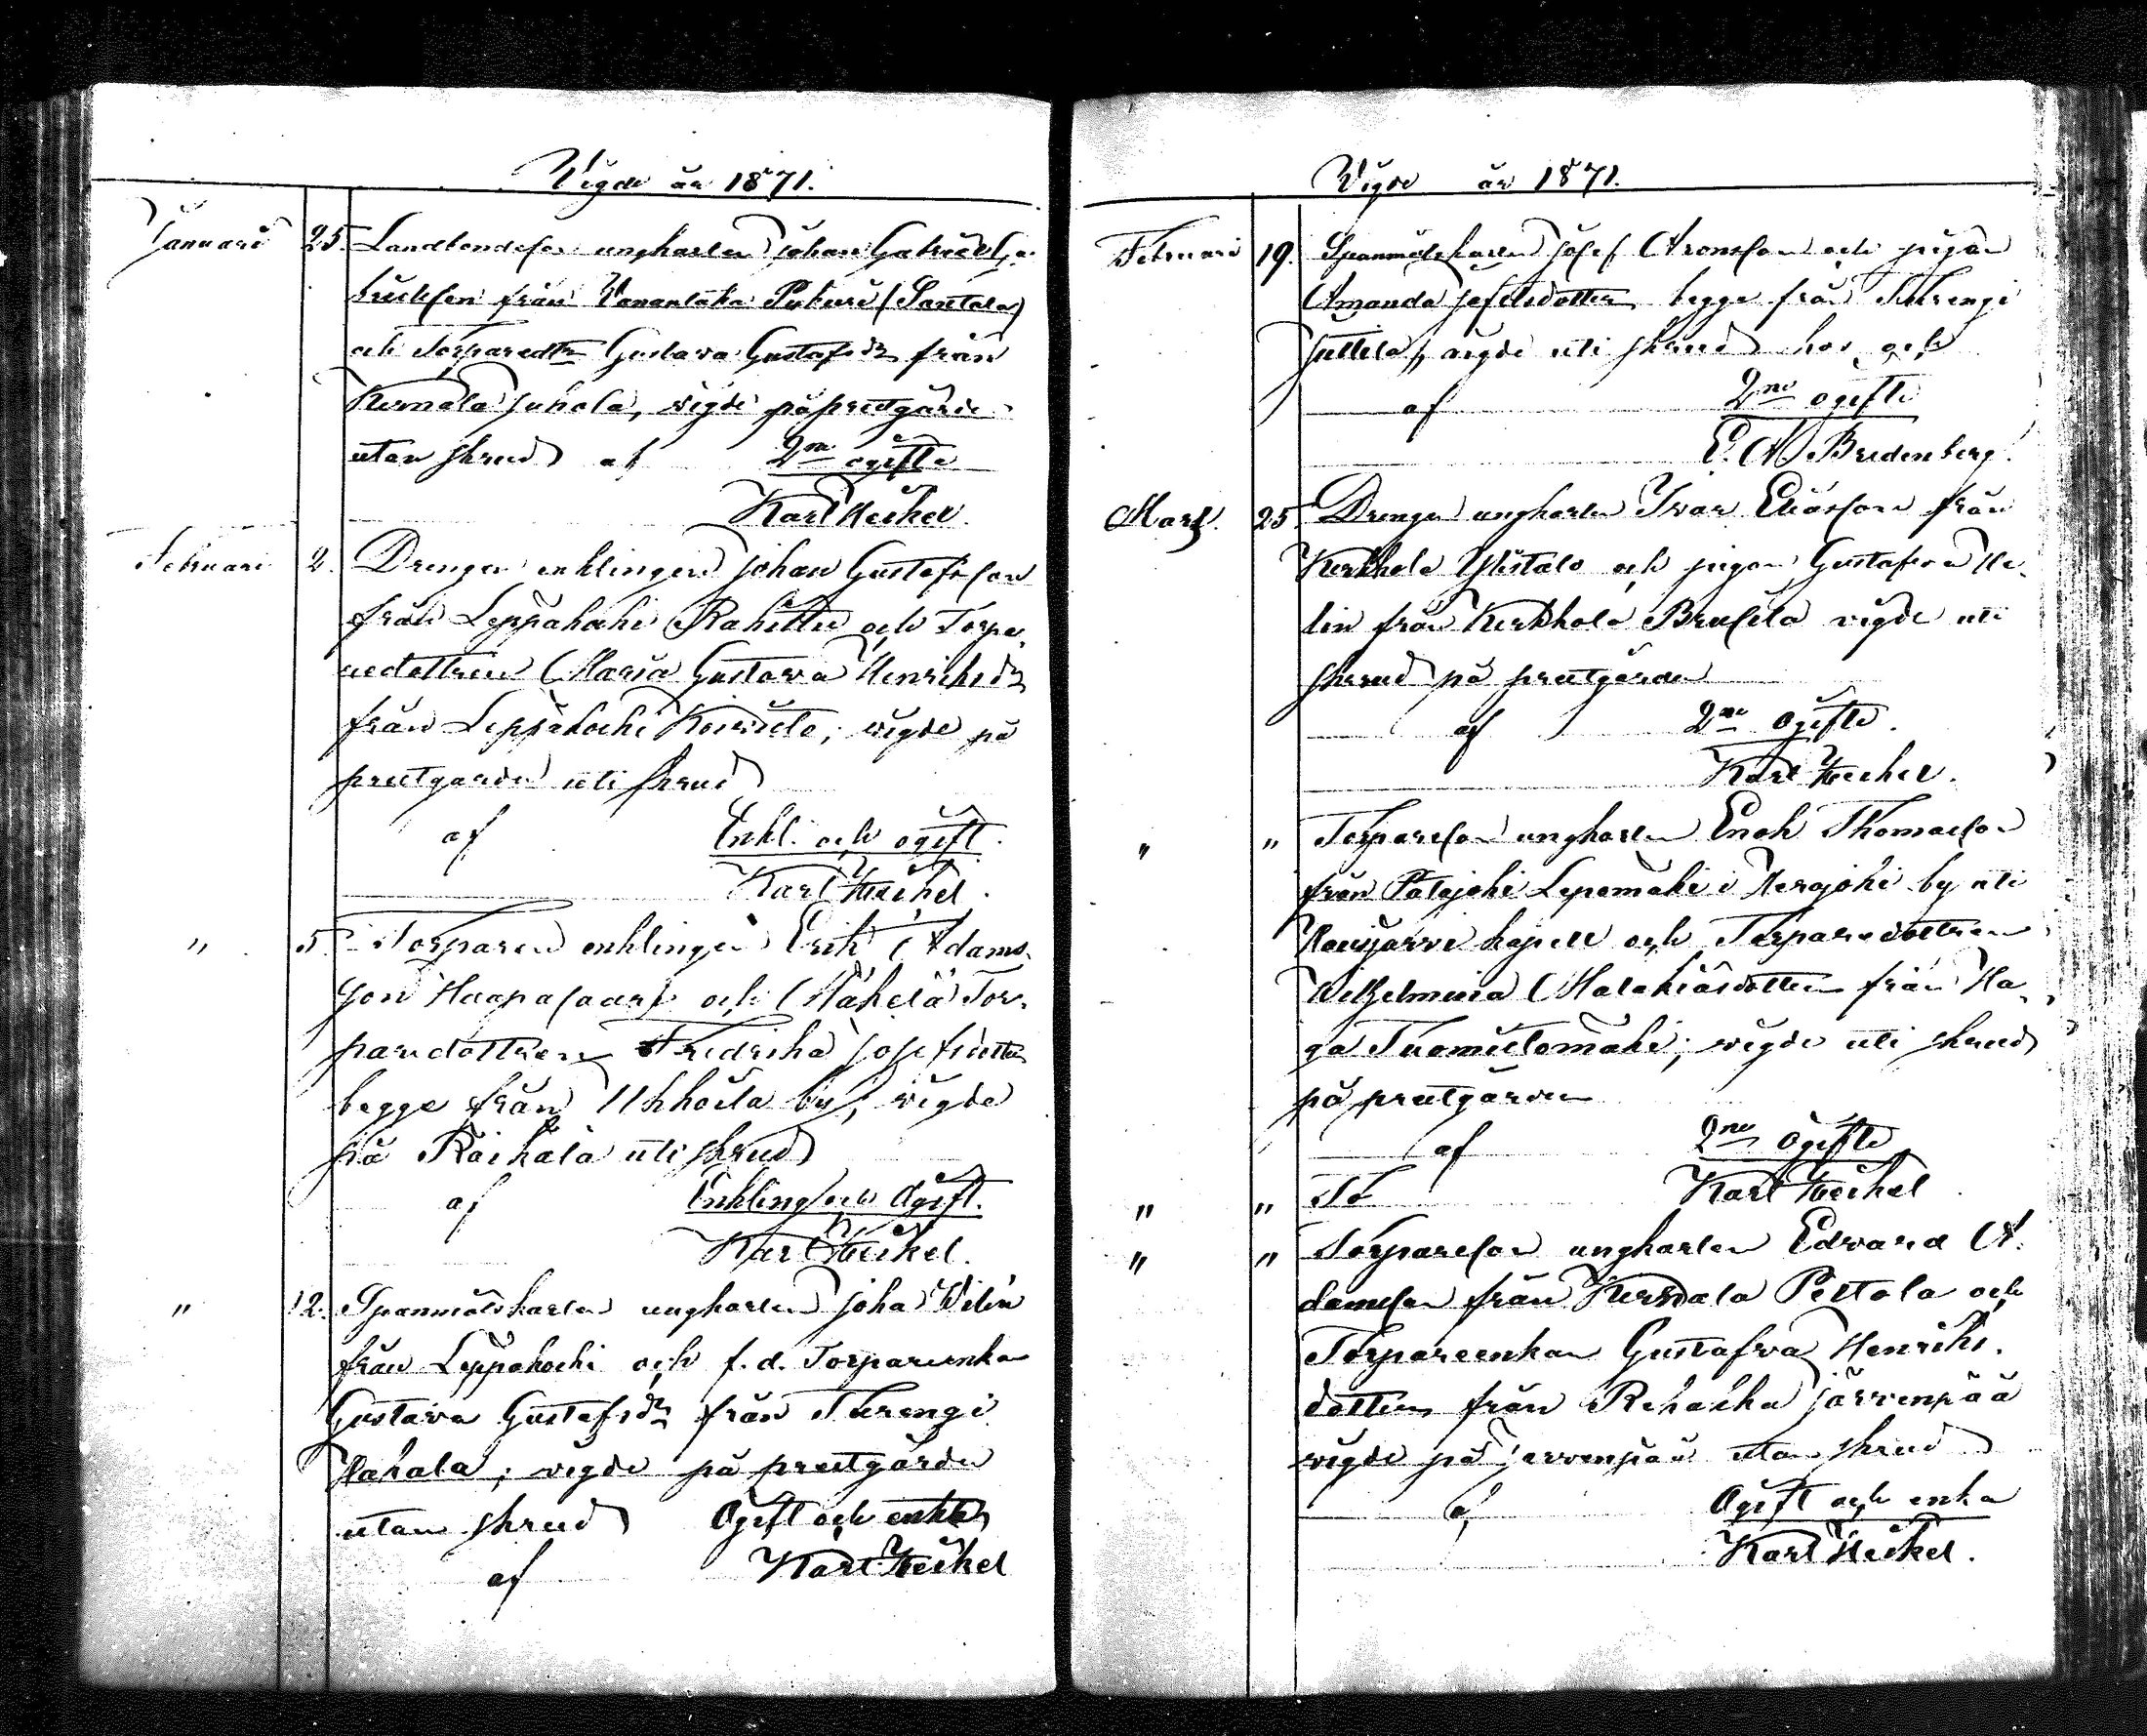 Vigde år 1871.
Januari 25. Landbondeson ungkarlen Johan Gabriel Ga-
brielsson från Vanantaka Pukuri (Santala)
och Torparedtr Gustava Gustafsdr från
Kernala Juhola, vigde på prestgården
utan skrud af 2ne ogifta
Karl Heikel.
Februari 2. Drengen enklingen Johan Gustafsson
från Leppäkoski Rahittu och Torpa-
redottren Maria Gustava Henriksdr
från Leppäkoski Koivula; vigde på
prestgården uti skrud
af Enkl. och ogift.
Karl Heikel.
" 5. Torparen enklingen Erik Adams-
son Haapasaari och Mäkelä Tor-
paredottren Fredrika Josefsdotter
begge från Uhkoila by; vigde
på Raikala uti skrud
af Enkling och Ogift.
Karl Heikel.
" 12. Spanmålskarlen ungkarlen Joha Vilén
från Leppäkoski och f.d. Torpareenkan
Gustava Gustafsdr från Turengi
Hakala; vigde på prestgården
utan skrud Ogift och enka
af Karl Heikel
Vigde år 1871.
Februari 19. Spanmålskarlen Josef Aronsson och pigan
Amanda Josefsdotter begge från Turengi
Juttila, vigde uti skrud hos och
af 2ne ogifta
E. A. Bredenberg.
Mars. 25 Drengen ungkarlen Ivar Eliasson från
Kerkkola Ylistalo och pigan Gustafva He-
lin från Kerkkola Brusila vigde uti
skrud på prestgården
af 2ne ogifta.
Karl Heikel.
" " Torpareson ungkarlen Enok Thomasson
från Patajoki Lepomäki i Herajoki by uti
Hausjärvi kapell och Torparedottren
Wilhelmina Malakiasdotter från Ha-
ga Tuomistomäki; vigde uti skrud
på prestgården
af 2ne Ogifta
" " To Karl Heikel
" " Torpareson ungkarlen Edvard A-
damsson från Kernala Pertola och
Torpareenkan Gustafva Henriks-
dotter från Rehakka Järvenpää
vigde på Jervenpää utan skrud
af Ogift och enka
Karl Heikel.